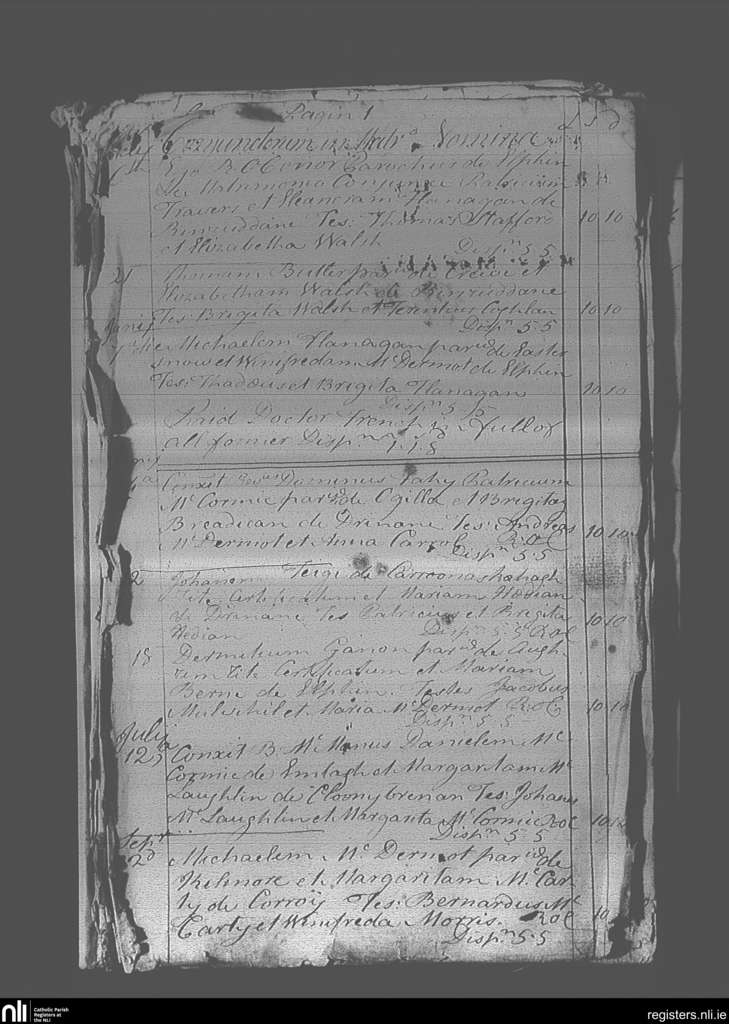 Pagin 1
Conjunctorum in Matr° Nomina £ S D
Ego B O Conor Parochus de Elphin
de Matrimonio Conjunxi Patricium
Travers et Eleanoram Flanagan de
Binruddane Tes: Thomas Stafford 10 10
et Elizabetha Walsh
Dispn 5 5
21 Thomam Butler par de Creive et
Elizabetham Walsh de Binruddane
Tes: Brigita Walsh et Terentius Coghlan 10 10
Dispn 5 5
Michaelem Flanagan par de Easter
snow et Winifredam Mc Dermot de Elphin
Tes: Thaddeus et Brigita Flanagan 10 10
Dispn 5 5
Paid Doctor French in full of
all former Dispns 1 . 1 . 8
Conxit Dominus Fahy Patricium
Mc Cormic par de Ogilla et Brigitam
Breadican de Drinane Tes: Andreas
Mc Dermot et Anna Carrol ROC 10 10
Dispn 5 5
2 Johanem Teige de Carroonashanagh
Tite Certificatum et Mariam Hedian
de Drinane Tes Patricius et Brigita 10 10
Hedian Dispn 5 5 ROC
18 Dermitium Ganon par de Augh-
rim Tite Certificatum et Mariam
Berne de Elphin. Testes Jacobus
Mulvihil et Maria Mc Dermot ROC 10 10
Dispn 5 5
July
12 Conxit B McManus Danielem Mc
Cormic de Emlagh et Margaritam Mc
Laughlin de Cloonybrenan Tes: Johanes
Mc Laughlin et Margarita Mc Cormic ROC 10 10
Dispn 5 5
Sepr
2d Michaelem Mc Dermot par de
Kilmore et Margaritam Mc Car
ty de Corroy Tes: Bernardus Mc
Carty et Winifreda Morris. ROC 10
Dispn 5 5
nli Catholic Parish
Registers at
the NLI
registers.nli.ie